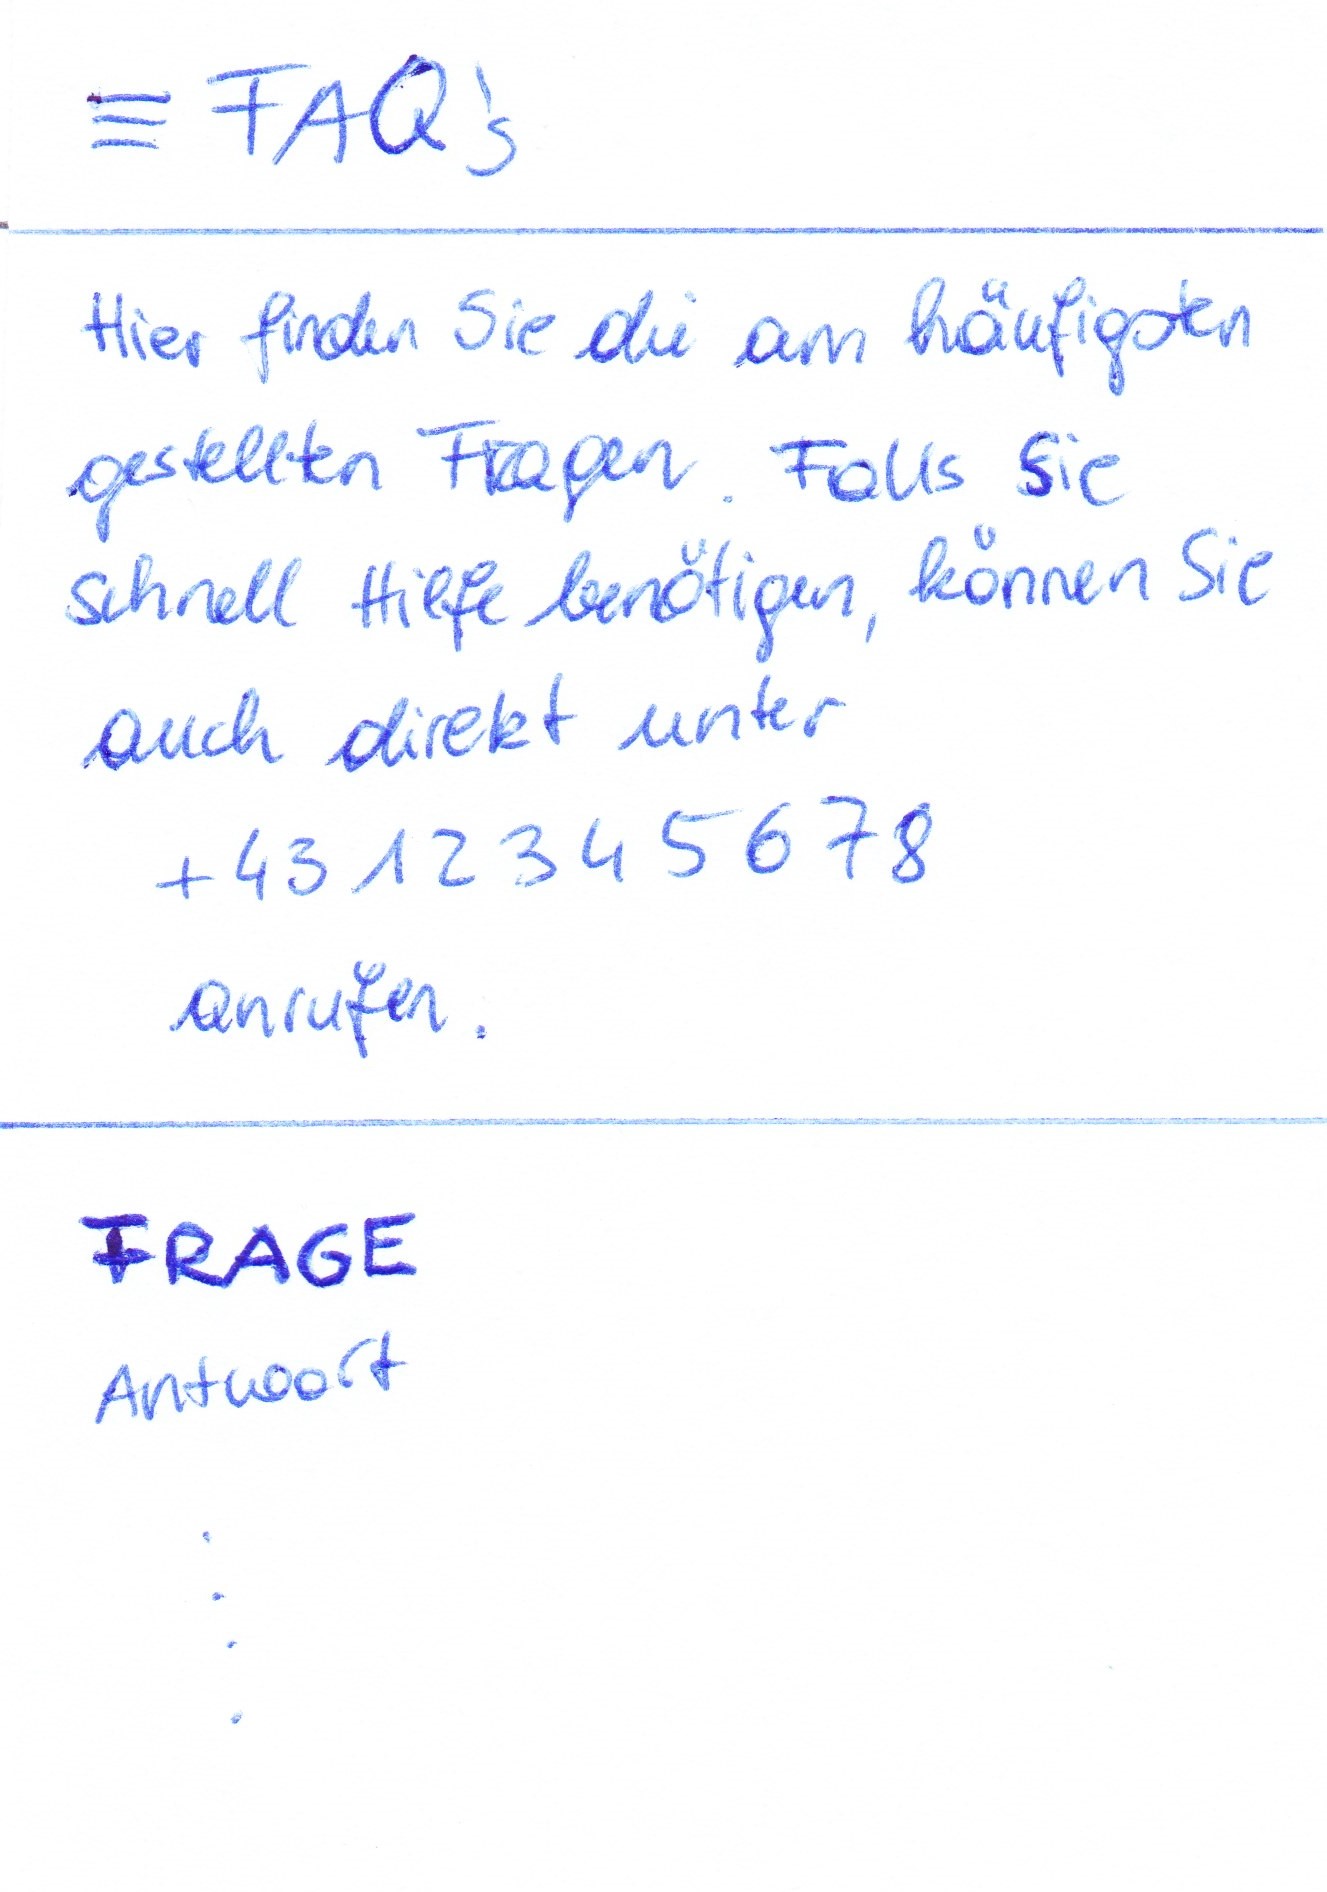 ≡ FAQ's
Hier finden Sie die am häufigsten
gestellten Fragen. Falls Sie
schnell Hilfe benötigen, können Sie
auch direkt unter
+43 12345678
anrufen.
FRAGE
Antwort